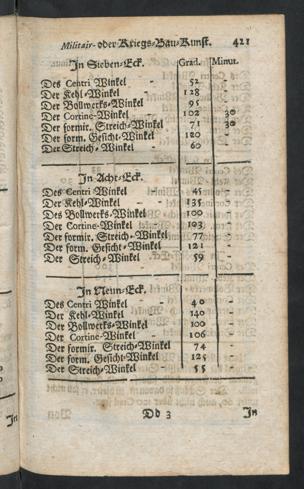 Militair- oder Kriegs-Bau-Kunst. 421
In Sieben-Eck. Grad. Minut.
Des Centri Winkel - 52 -
Der Kehl-Winkel 128 -
Der Bollwercks-Winkel 95 -
Der Cortine-Winkel - 102 30
Der formir. Streich-Winkel 71 30
Der form. Gesicht-Winkel 120 -
Der Streich-Winkel 60 -
In Acht-Eck.
Des Centri Winkel - 45 -
Der Kehl-Winkel - 135 -
Des Bollwercks-Winkel 100 -
Der Cortine-Winkel 103 -
Der formir. Streich-Winkel 77 -
Der form. Gesicht-Winkel 121 -
Der Streich-Winkel 59 -
In Neun-Eck.
Des Centri Winkel - 40 -
Der Kehl-Winkel 140 -
Der Bollwercks-Winkel 100 -
Der Cortine-Winkel 106 -
Der formir. Streich-Winkel 74 -
Der form. Gesicht-Winkel 125 -
Der Streich-Winkel - 55 -
Dd 3 In